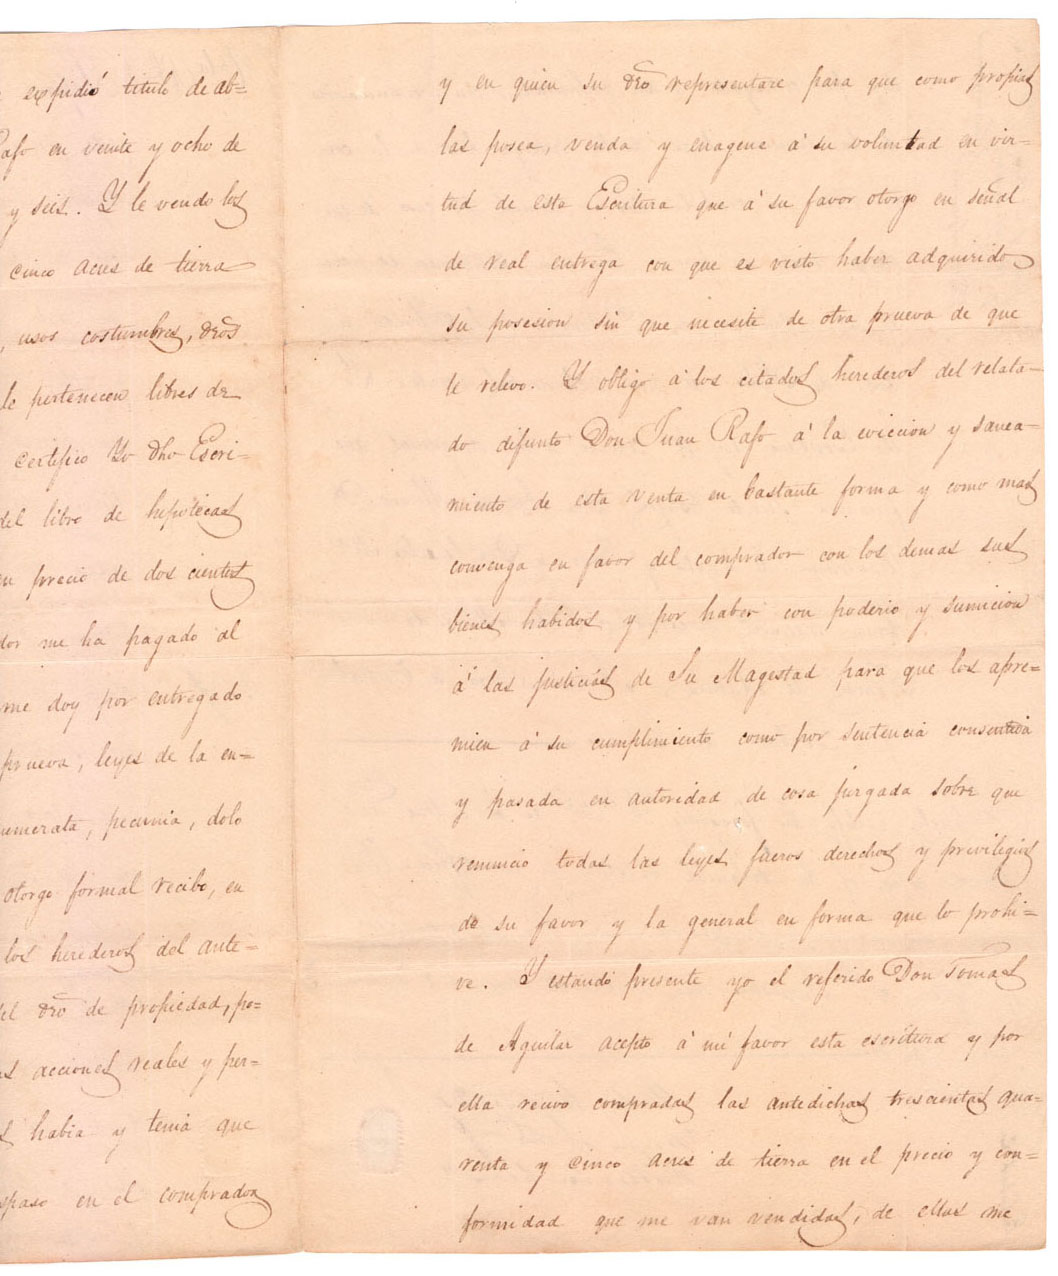 expidió titulo de ab=
afo en veinte y ocho de
y seis. Y le vendo los
cinco acres de tierra
, usos costumbres, dros
le pertenecen libres de
certifico Yo dho Escri-
del libro de hipotecas
en precio de dos cientos
dor me ha pagado al
me doy por entregado
prueva, leyes de la en=
numerata, pecunia, dolo
otorgo formal recibo, en
los herederos del ante=
del dro de propiedad, po=
as acciones reales y per=
s habia y tenia que
spaso en el comprador
y en quien su dro representare para que como propias
las posea, venda y enagene á su voluntad en vir=
tud de esta Escritura que á su favor otorgo en señal
de real entrega con que es visto haber adquirido
su posesion sin que necesite de otra prueva de que
le relevo. Y obligo á los citados herederos del relata-
do difunto Don Juan Rafo á la eviccion y sanea-
miento de esta venta en bastante forma y como mas
convenga en favor del comprador con los demas sus
bienes habidos y por haber con poderio y sumicion
á las justicias de Su Magestad para que los apre-
mien á su cumplimiento como por sentencia consentida
y pasada en autoridad de cosa jurgada sobre que
renuncio todas las leyes fueros derechos y privilegios
de su favor y la general en forma que lo prohi-
ve. Y estando presente yo el referido Don Tomas
de Aguilar acepto á mi favor esta escritura y por
ella recivo compradas las antedichas trescientas qua=
renta y cinco acres de tierra en el precio y con=
formidad que me van vendidas, de ellas me